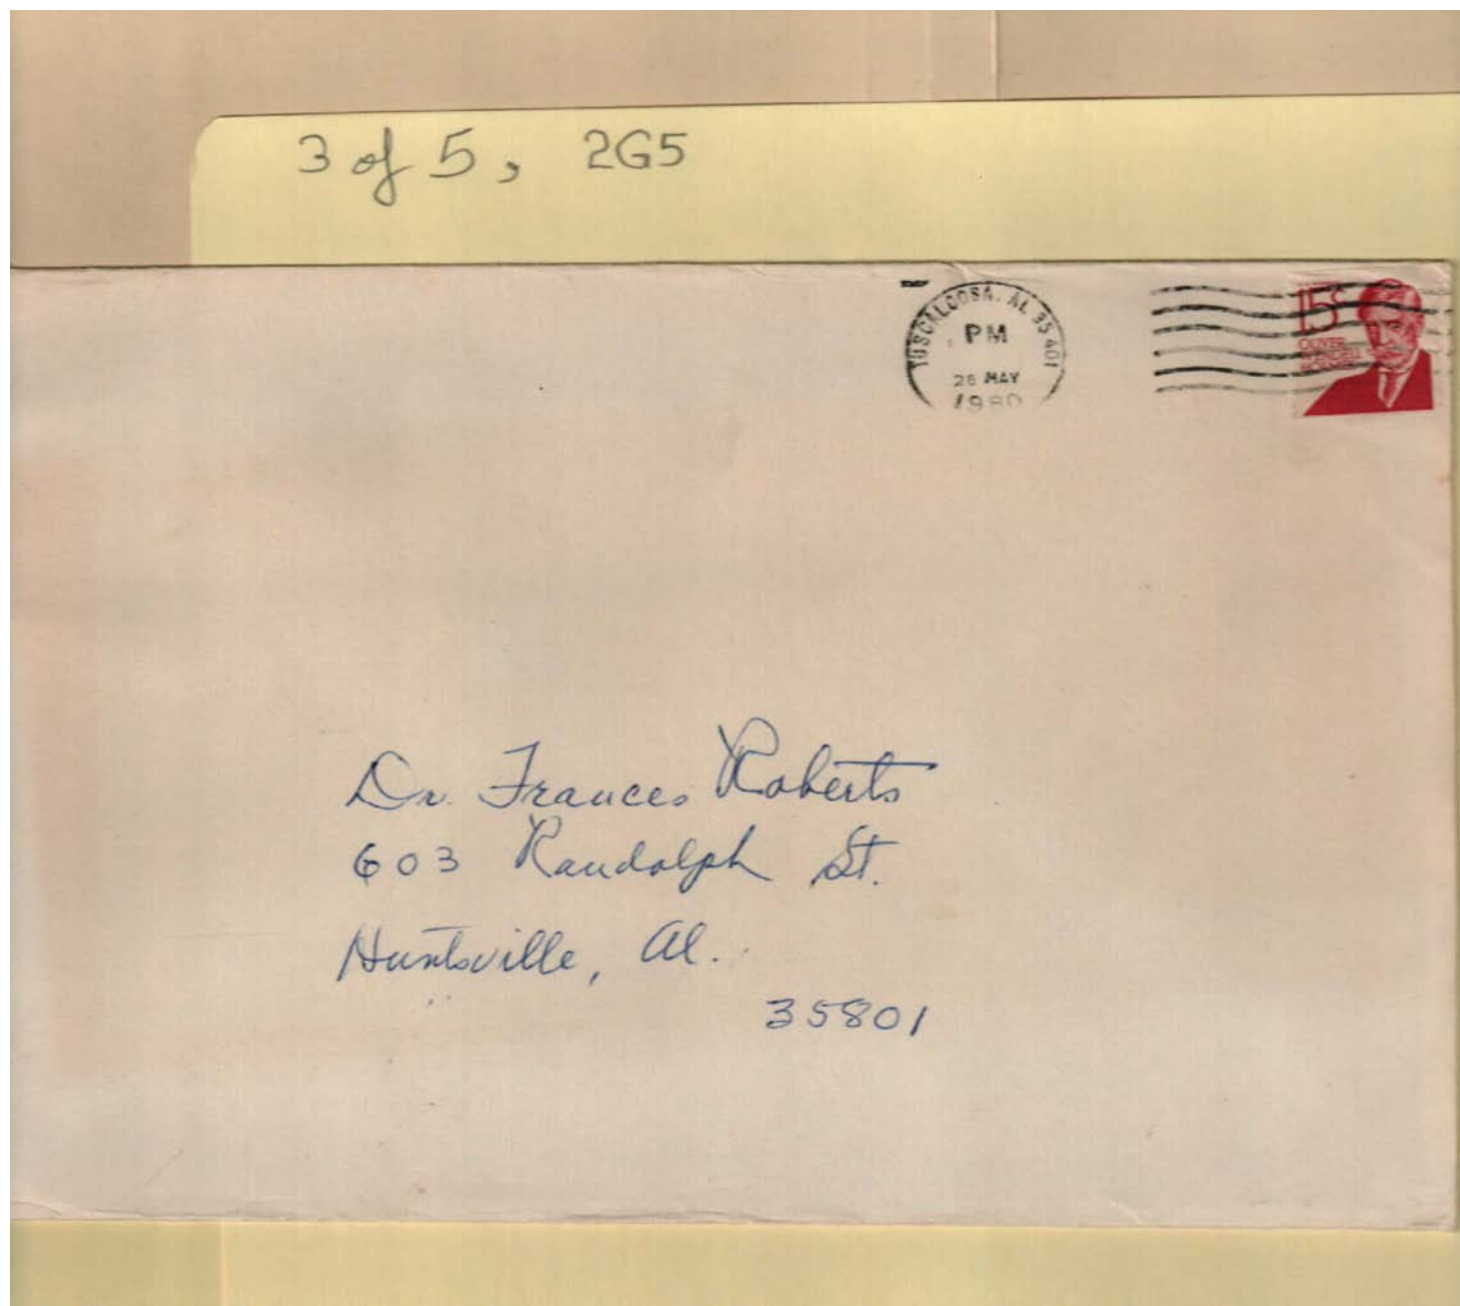 3 of 5, 2G5
TUSCALOOSA, AL 35401
PM
28 MAY
1980
15c
OLIVER
WENDELL
HOLMES
Dr. Frances Roberts
603 Randolph St.
Huntsville, Al.
35801